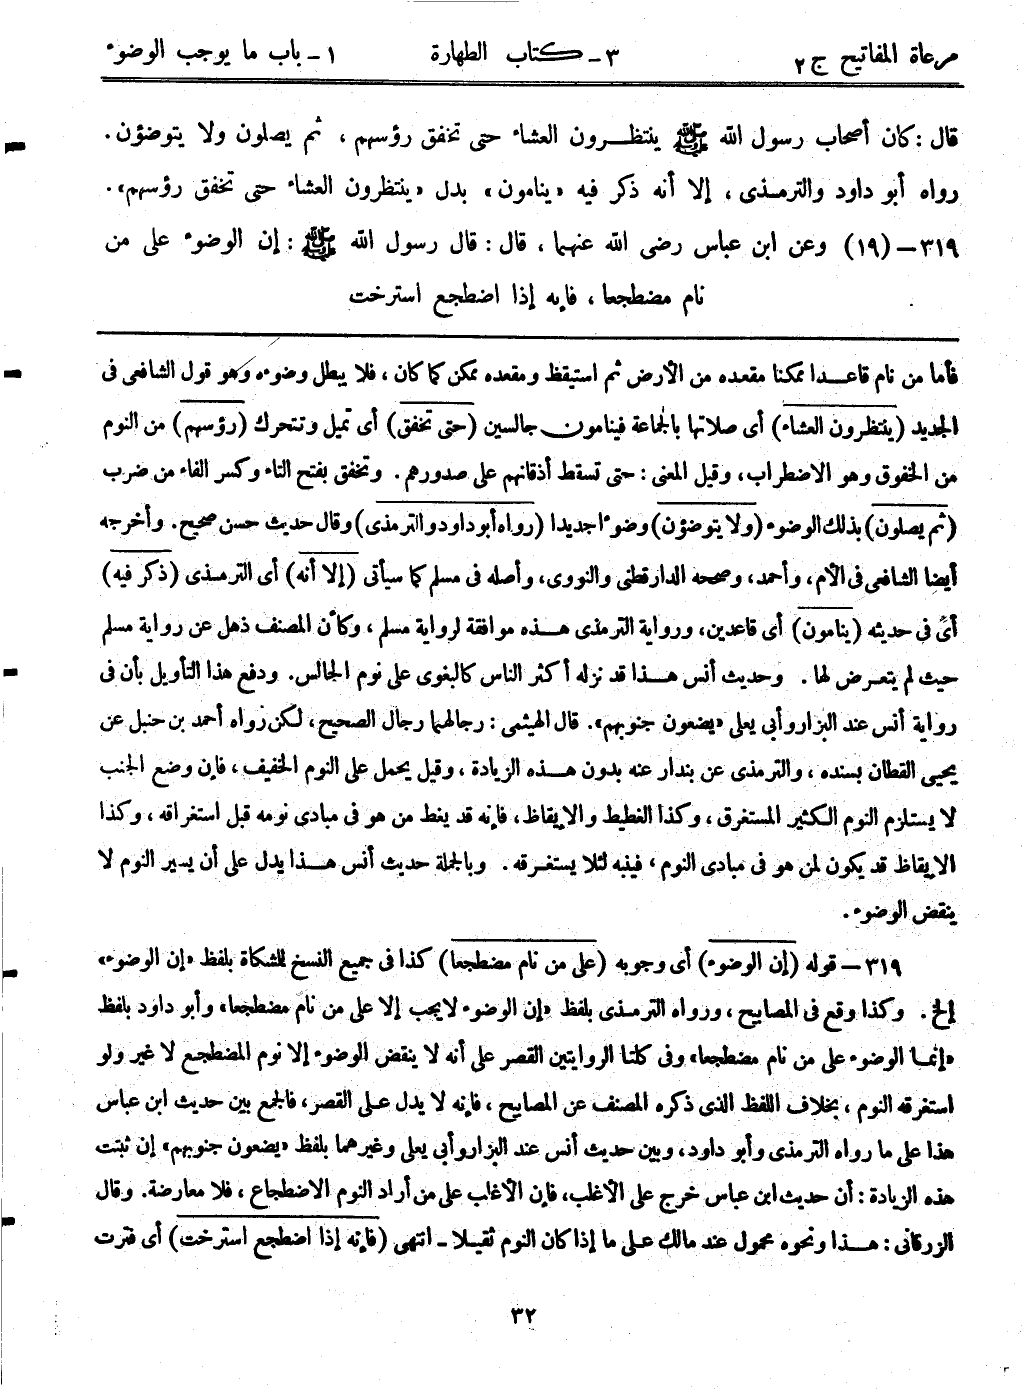 مرعاة المفاتيح ج ٢ ٣ - كتاب الطهارة ١ - باب ما يوجب الوضوء
قال : كان أصحاب رسول الله ﷺ ينتظرون العشاء حتى تخفق رؤسهم ، ثم يصلون ولا يتوضؤن .
رواه أبو داود والترمذى ، إلا أنه ذكر فيه «ينامون» بدل «ينتظرون العشاء حتى تخفق رؤسهم» .
٣١٩ – (١٩) وعن ابن عباس رضى الله عنهما ، قال : قال رسول الله ﷺ : إن الوضوء على من
نام مضطجعا ، فإنه إذا اضطجع استرخت
فأما من نام قاعدا ممكنا مقعده من الأرض ثم استيقظ ومقعده ممكن كما كان ، فلا يبطل وضوءه وهو قول الشافعى فى
الجديد (ينتظرون العشاء) أى صلاتها بالجماعة فينامون جالسين (حتى تخفق) أى تميل وتتحرك (رؤسهم) من النوم
من الخفوق وهو الاضطراب، وقيل المعنى : حتى تسقط أذقانهم على صدورهم . وتخفق بفتح التاء وكسر الفاء من ضرب
(ثم يصلون) بذلك الوضوء (ولا يتوضؤن) وضوءا جديدا (رواه أبو داود والترمذى) وقال حديث حسن صحيح . وأخرجه
أيضا الشافعى فى الأم، وأحمد، وصححه الدارقطنى والنووى، وأصله فى مسلم كما سيأتى (إلا أنه) أى الترمذى (ذكر فيه)
أى فى حديثه (ينامون) أى قاعدين، ورواية الترمذى هذه موافقة لرواية مسلم ، وكأن المصنف ذهل عن رواية مسلم
حيث لم يتعرض لها . وحديث أنس هذا قد نزله أكثر الناس كالبغوى على نوم الجالس. ودفع هذا التأويل بأن فى
رواية أنس عند البزار وأبى يعلى «يضعون جنوبهم». قال الهيثمى : رجالهما رجال الصحيح ، لكن رواه أحمد بن حنبل عن
يحيى القطان بسنده ، والترمذى عن بندار عنه بدون هذه الزيادة ، وقيل يحمل على النوم الخفيف ، فإن وضع الجنب
لا يستلزم النوم الكثير المستغرق ، وكذا الغطيط والايقاظ ، فإنه قد يغط من هو فى مبادى نومه قبل استغراقه ، وكذا
الايقاظ قد يكون لمن هو فى مبادى النوم ، فينبه لئلا يستغرقه . وبالجملة حديث أنس هذا يدل على أن يسير النوم لا
ينقض الوضوء .
٣١٩ – قوله (إن الوضوء) أى وجوبه (على من نام مضطجعا) كذا فى جميع النسخ للمشكاة بلفظ «إن الوضوء»
إلخ . وكذا وقع فى المصابيح ، ورواه الترمذى بلفظ «إن الوضوء لايجب إلا على من نام مضطجعا» وأبو داود بلفظ
«إنما الوضوء على من نام مضطجعا» وفى كلتا الروايتين القصر على أنه لا ينقض الوضوء إلا نوم المضطجع لا غير ولو
استغرقه النوم ، بخلاف اللفظ الذى ذكره المصنف عن المصابيح ، فإنه لا يدل على القصر، فالجمع بين حديث ابن عباس
هذا على ما رواه الترمذى وأبو داود، وبين حديث أنس عند البزار وأبى يعلى وغيرهما بلفظ «يضعون جنوبهم» إن ثبتت
هذه الزيادة : أن حديث ابن عباس خرج على الأغلب، فإن الأغلب على من أراد النوم الاضطجاع ، فلا معارضة. وقال
الزرقانى : هذا ونحوه محمول عند مالك على ما إذا كان النوم ثقيلا - انتهى (فإنه إذا اضطجع استرخت) أى فترت
٣٢